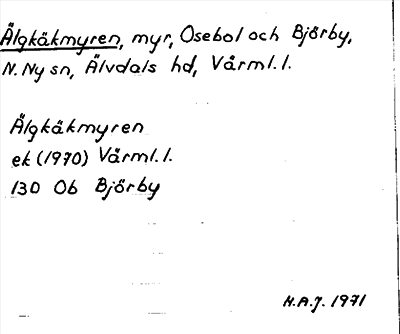 Älgkäkmyren, myr, Osebol och Björby,
N. Ny sn, Älvdals hd, Värml. l.
Älgkäkmyren
ek (1970) Värml. l.
13D Ob Björby
H.A.J. 1971